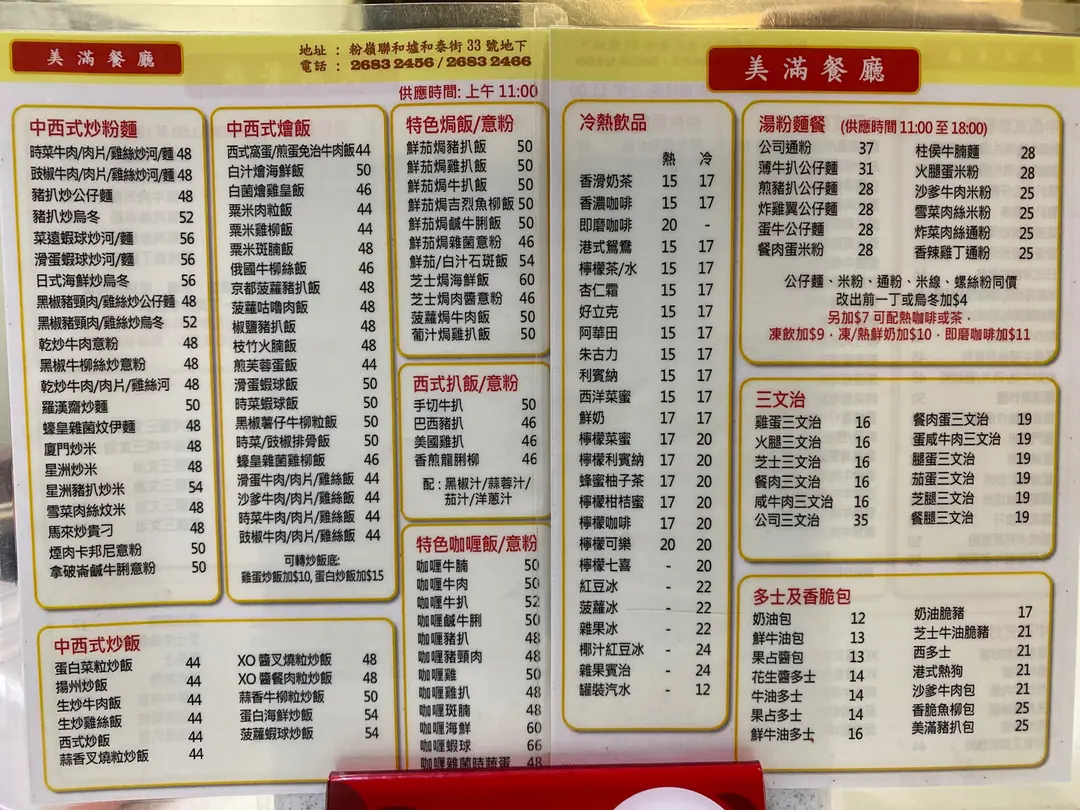 美滿餐廳
地址 : 粉嶺聯和墟和泰街 33 號地下
電話 : 2683 2456 / 2683 2466
供應時間: 上午 11:00
中西式炒粉麵
時菜牛肉/肉片/雞絲炒河/麵 48
豉椒牛肉/肉片/雞絲炒河/麵 48
豬扒炒公仔麵 48
豬扒炒烏冬 52
菜遠蝦球炒河/麵 56
滑蛋蝦球炒河/麵 56
日式海鮮炒烏冬 56
黑椒豬頸肉/雞絲炒公仔麵 48
黑椒豬頸肉/雞絲炒烏冬 52
乾炒牛肉意粉 48
黑椒牛柳絲炒意粉 48
乾炒牛肉/肉片/雞絲河 48
羅漢齋炒麵 50
蠔皇雜菌炆伊麵 50
廈門炒米 48
星洲炒米 48
星洲豬扒炒米 54
雪菜肉絲炆米 48
馬來炒貴刁 48
煙肉卡邦尼意粉 50
拿破崙鹹牛脷意粉 50
中西式燴飯
西式窩蛋/煎蛋免治牛肉飯 44
白汁燴海鮮飯 50
白菌燴雞皇飯 46
粟米肉粒飯 44
粟米雞柳飯 44
粟米斑腩飯 48
俄國牛柳絲飯 46
京都菠蘿豬扒飯 48
菠蘿咕嚕肉飯 48
椒鹽豬扒飯 48
枝竹火腩飯 48
煎芙蓉蛋飯 44
滑蛋蝦球飯 50
時菜蝦球飯 50
黑椒薯仔牛柳粒飯 50
時菜/豉椒排骨飯 50
蠔皇雜菌雞柳飯 46
滑蛋牛肉/肉片/雞絲飯 44
沙爹牛肉/肉片/雞絲飯 44
時菜牛肉/肉片/雞絲飯 44
豉椒牛肉/肉片/雞絲飯 44
可轉炒飯底:
雞蛋炒飯加$10, 蛋白炒飯加$15
特色焗飯/意粉
鮮茄焗豬扒飯 50
鮮茄焗雞扒飯 50
鮮茄焗牛扒飯 50
鮮茄焗吉烈魚柳飯 50
鮮茄焗鹹牛脷飯 50
鮮茄焗雜菌意粉 46
鮮茄/白汁石斑飯 54
芝士焗海鮮飯 60
芝士焗肉醬意粉 46
菠蘿焗牛肉飯 50
葡汁焗雞扒飯 50
西式扒飯/意粉
手切牛扒 50
巴西豬扒 46
美國雞扒 46
香煎龍脷柳 46
配 : 黑椒汁/蒜蓉汁/
茄汁/洋蔥汁
特色咖喱飯/意粉
咖喱牛腩 50
咖喱牛肉 50
咖喱牛扒 52
咖喱鹹牛脷 50
咖喱豬扒 48
咖喱豬頸肉 48
咖喱雞 50
咖喱雞扒 48
咖喱斑腩 48
咖喱海鮮 60
咖喱蝦球 66
咖喱雜菌時蔬蛋 48
中西式炒飯
蛋白菜粒炒飯 44
揚州炒飯 44
生炒牛肉飯 44
生炒雞絲飯 44
西式炒飯 44
蒜香叉燒粒炒飯 44
XO 醬叉燒粒炒飯 48
XO 醬餐肉粒炒飯 48
蒜香牛柳粒炒飯 50
蛋白海鮮炒飯 54
菠蘿蝦球炒飯 54
美滿餐廳
冷熱飲品
熱 冷
香滑奶茶 15 17
香濃咖啡 15 17
即磨咖啡 20 -
港式鴛鴦 15 17
檸檬茶/水 15 17
杏仁霜 15 17
好立克 15 17
阿華田 15 17
朱古力 15 17
利賓納 15 17
西洋菜蜜 15 17
鮮奶 17 17
檸檬菜蜜 17 20
檸檬利賓納 17 20
蜂蜜柚子茶 17 20
檸檬柑桔蜜 17 20
檸檬咖啡 17 20
檸檬可樂 20 20
檸檬七喜 - 20
紅豆冰 - 22
菠蘿冰 - 22
雜果冰 - 22
椰汁紅豆冰 - 24
雜果賓治 - 24
罐裝汽水 - 12
湯粉麵餐 (供應時間 11:00 至 18:00)
公司通粉 37
薄牛扒公仔麵 31
煎豬扒公仔麵 28
炸雞翼公仔麵 28
蛋牛公仔麵 28
餐肉蛋米粉 28
柱侯牛腩麵 28
火腿蛋米粉 28
沙爹牛肉米粉 25
雪菜肉絲米粉 25
炸菜肉絲通粉 25
香辣雞丁通粉 25
公仔麵、米粉、通粉、米線、螺絲粉同價
改出前一丁或烏冬加$4
另加$7 可配熱咖啡或茶.
凍飲加$9﹒凍/熱鮮奶加$10﹒即磨咖啡加$11
三文治
雞蛋三文治 16
火腿三文治 16
芝士三文治 16
餐肉三文治 16
咸牛肉三文治 16
公司三文治 35
餐肉蛋三文治 19
蛋咸牛肉三文治 19
腿蛋三文治 19
茄蛋三文治 19
芝腿三文治 19
餐腿三文治 19
多士及香脆包
奶油包 12
鮮牛油包 13
果占醬包 13
花生醬多士 14
牛油多士 14
果占多士 14
鮮牛油多士 16
奶油脆豬 17
芝士牛油脆豬 21
西多士 21
港式熱狗 21
沙爹牛肉包 21
香脆魚柳包 25
美滿豬扒包 25